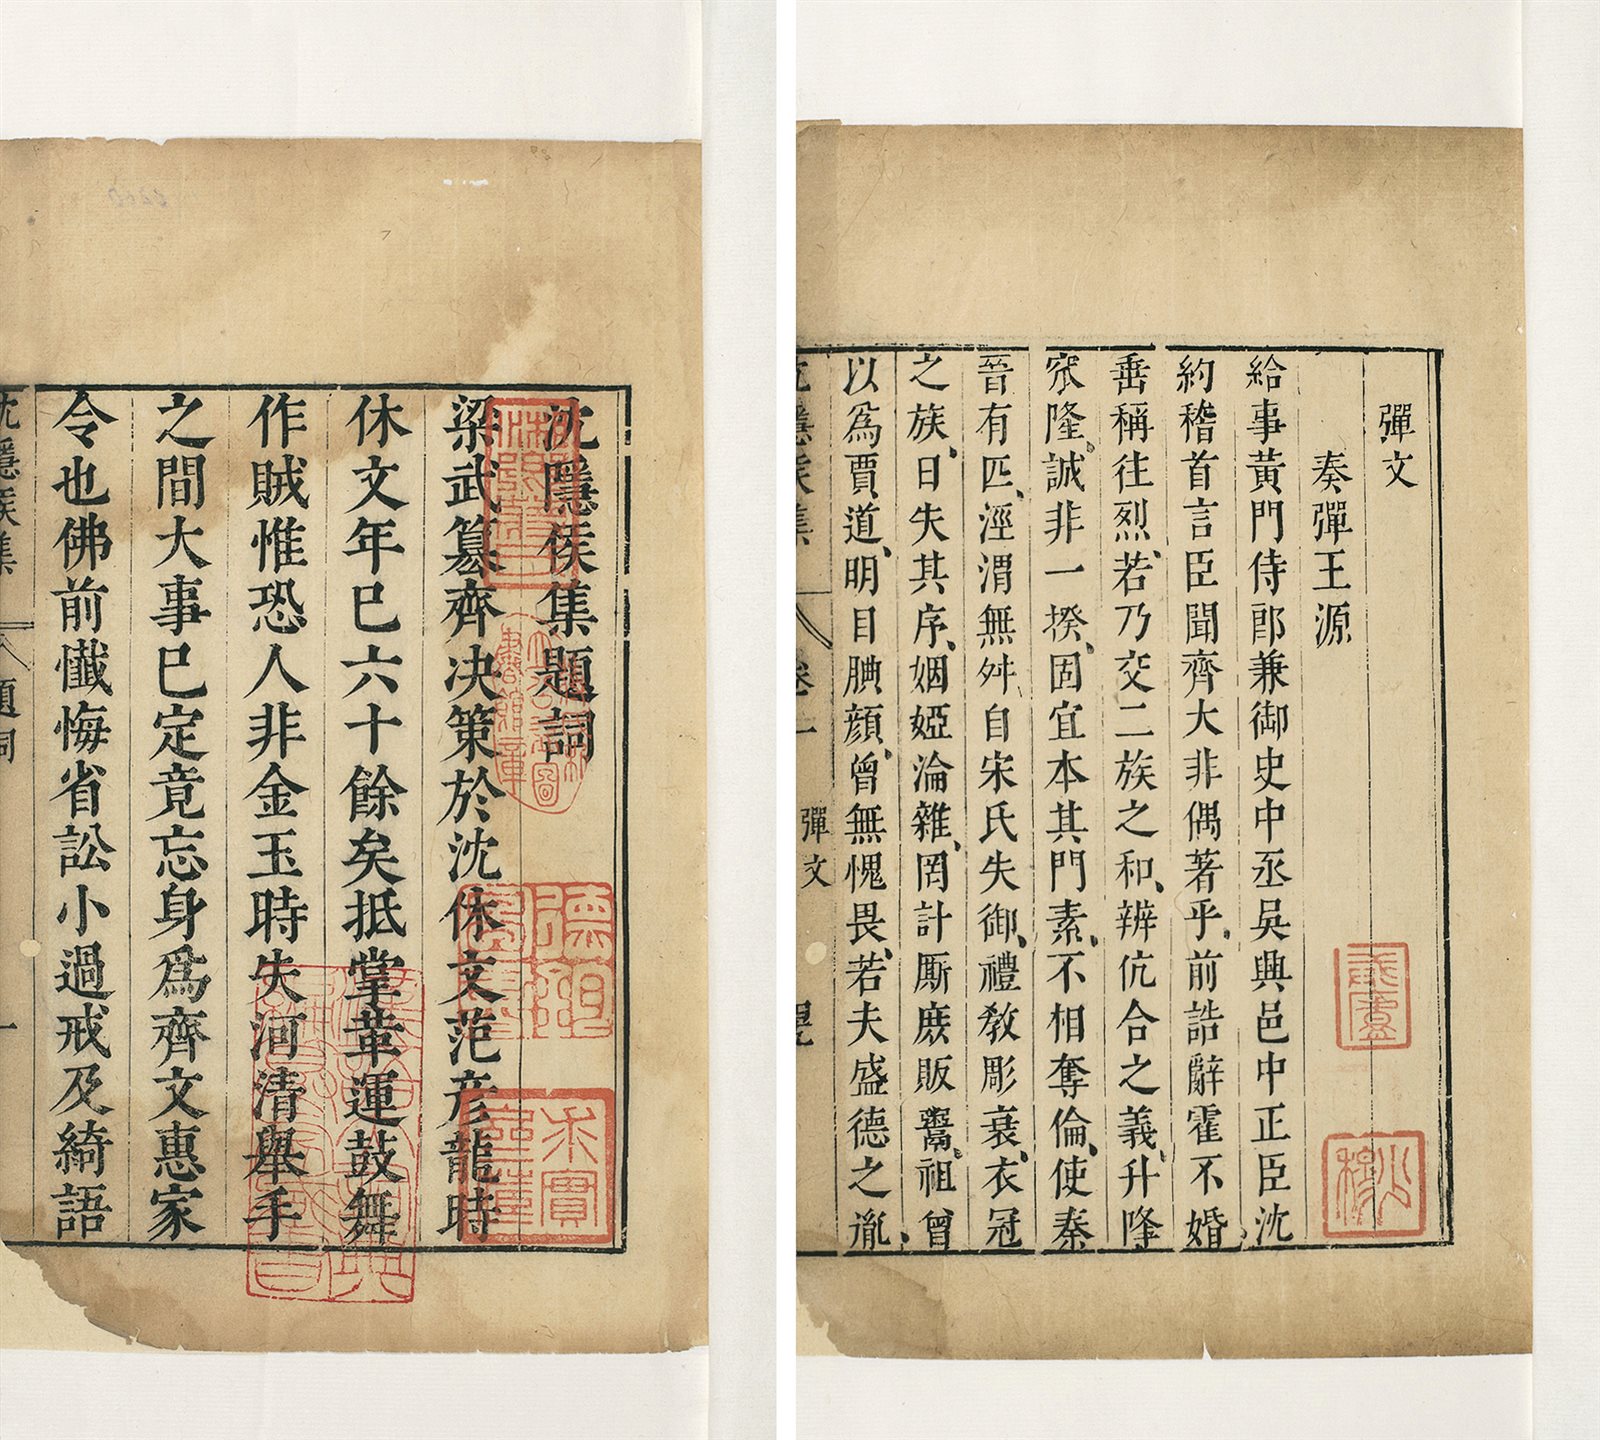 沈隱侯集題詞
梁武篡齊決策於沈休文范彥龍時
休文年已六十餘矣抵掌革運鼓舞
作賊惟恐人非金玉時失河清舉手
之間大事已定竟忘身爲齊文惠家
令也佛前懺悔省訟小過戒及綺語
沈隱侯集
題詞
一
彈文
奏彈王源
給事黃門侍郎兼御史中丞吳興邑中正臣沈
約稽首言臣聞齊大非偶著乎前誥辭霍不婚
垂稱往烈若乃交二族之和辨伉合之義升降
窊隆誠非一揆固宜本其門素不相奪倫使秦
晉有匹涇渭無舛自宋氏失御禮教彫衰衣冠
之族日失其序姻婭淪雜罔計厮庶販鬻祖曾
以為賈道明目腆顔曾無愧畏若夫盛德之胤
沈隱侯集
卷一
彈文